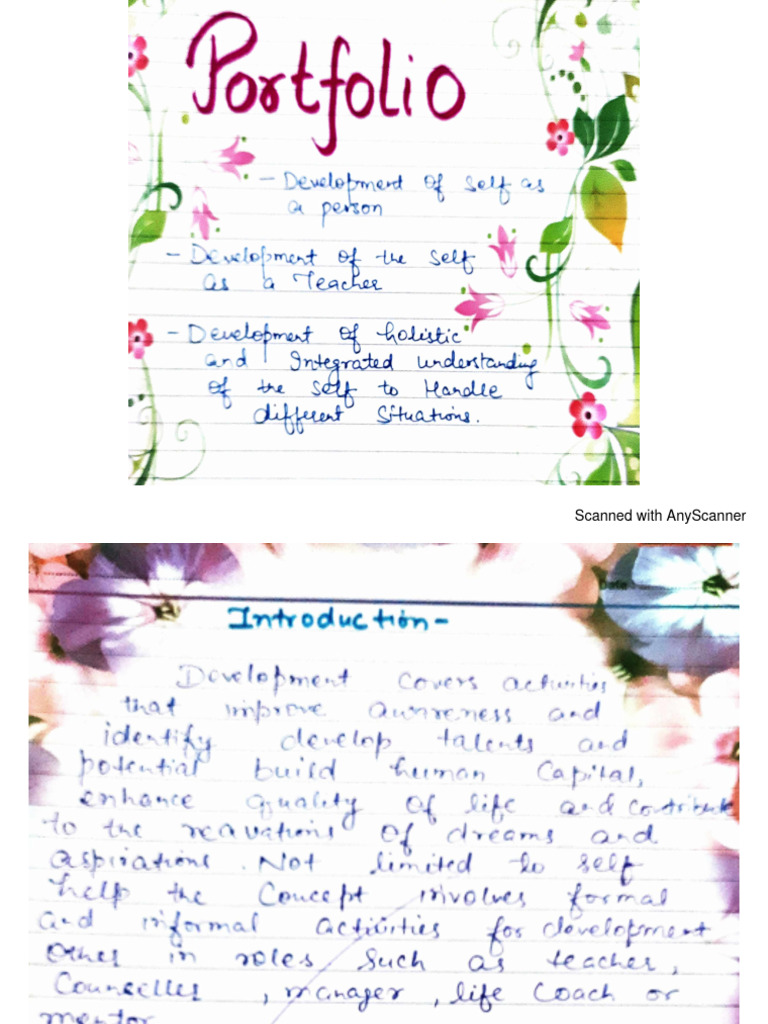 Portfolio
- Development of self as
a person
- Development of the self
as a Teacher
- Development of holistic
and Integrated understanding
of the self to Handle
different Situations.
Scanned with AnyScanner
Date
Introduction-
Development covers activities
that improve awareness and
identify develop talents and
potential build human Capital,
enhance quality of life and contribute
to the of dreams and
aspirations. Not limited to self
help the Concept involves formal
and informal activities for development
other in roles such as teacher,
, manager, life Coach or
mentor